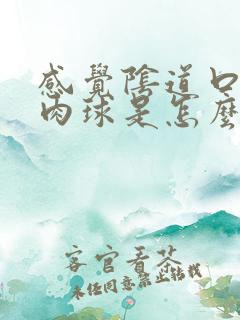 感覺陰道口有
肉球是怎麼
客官看茶
未经同意禁止转载